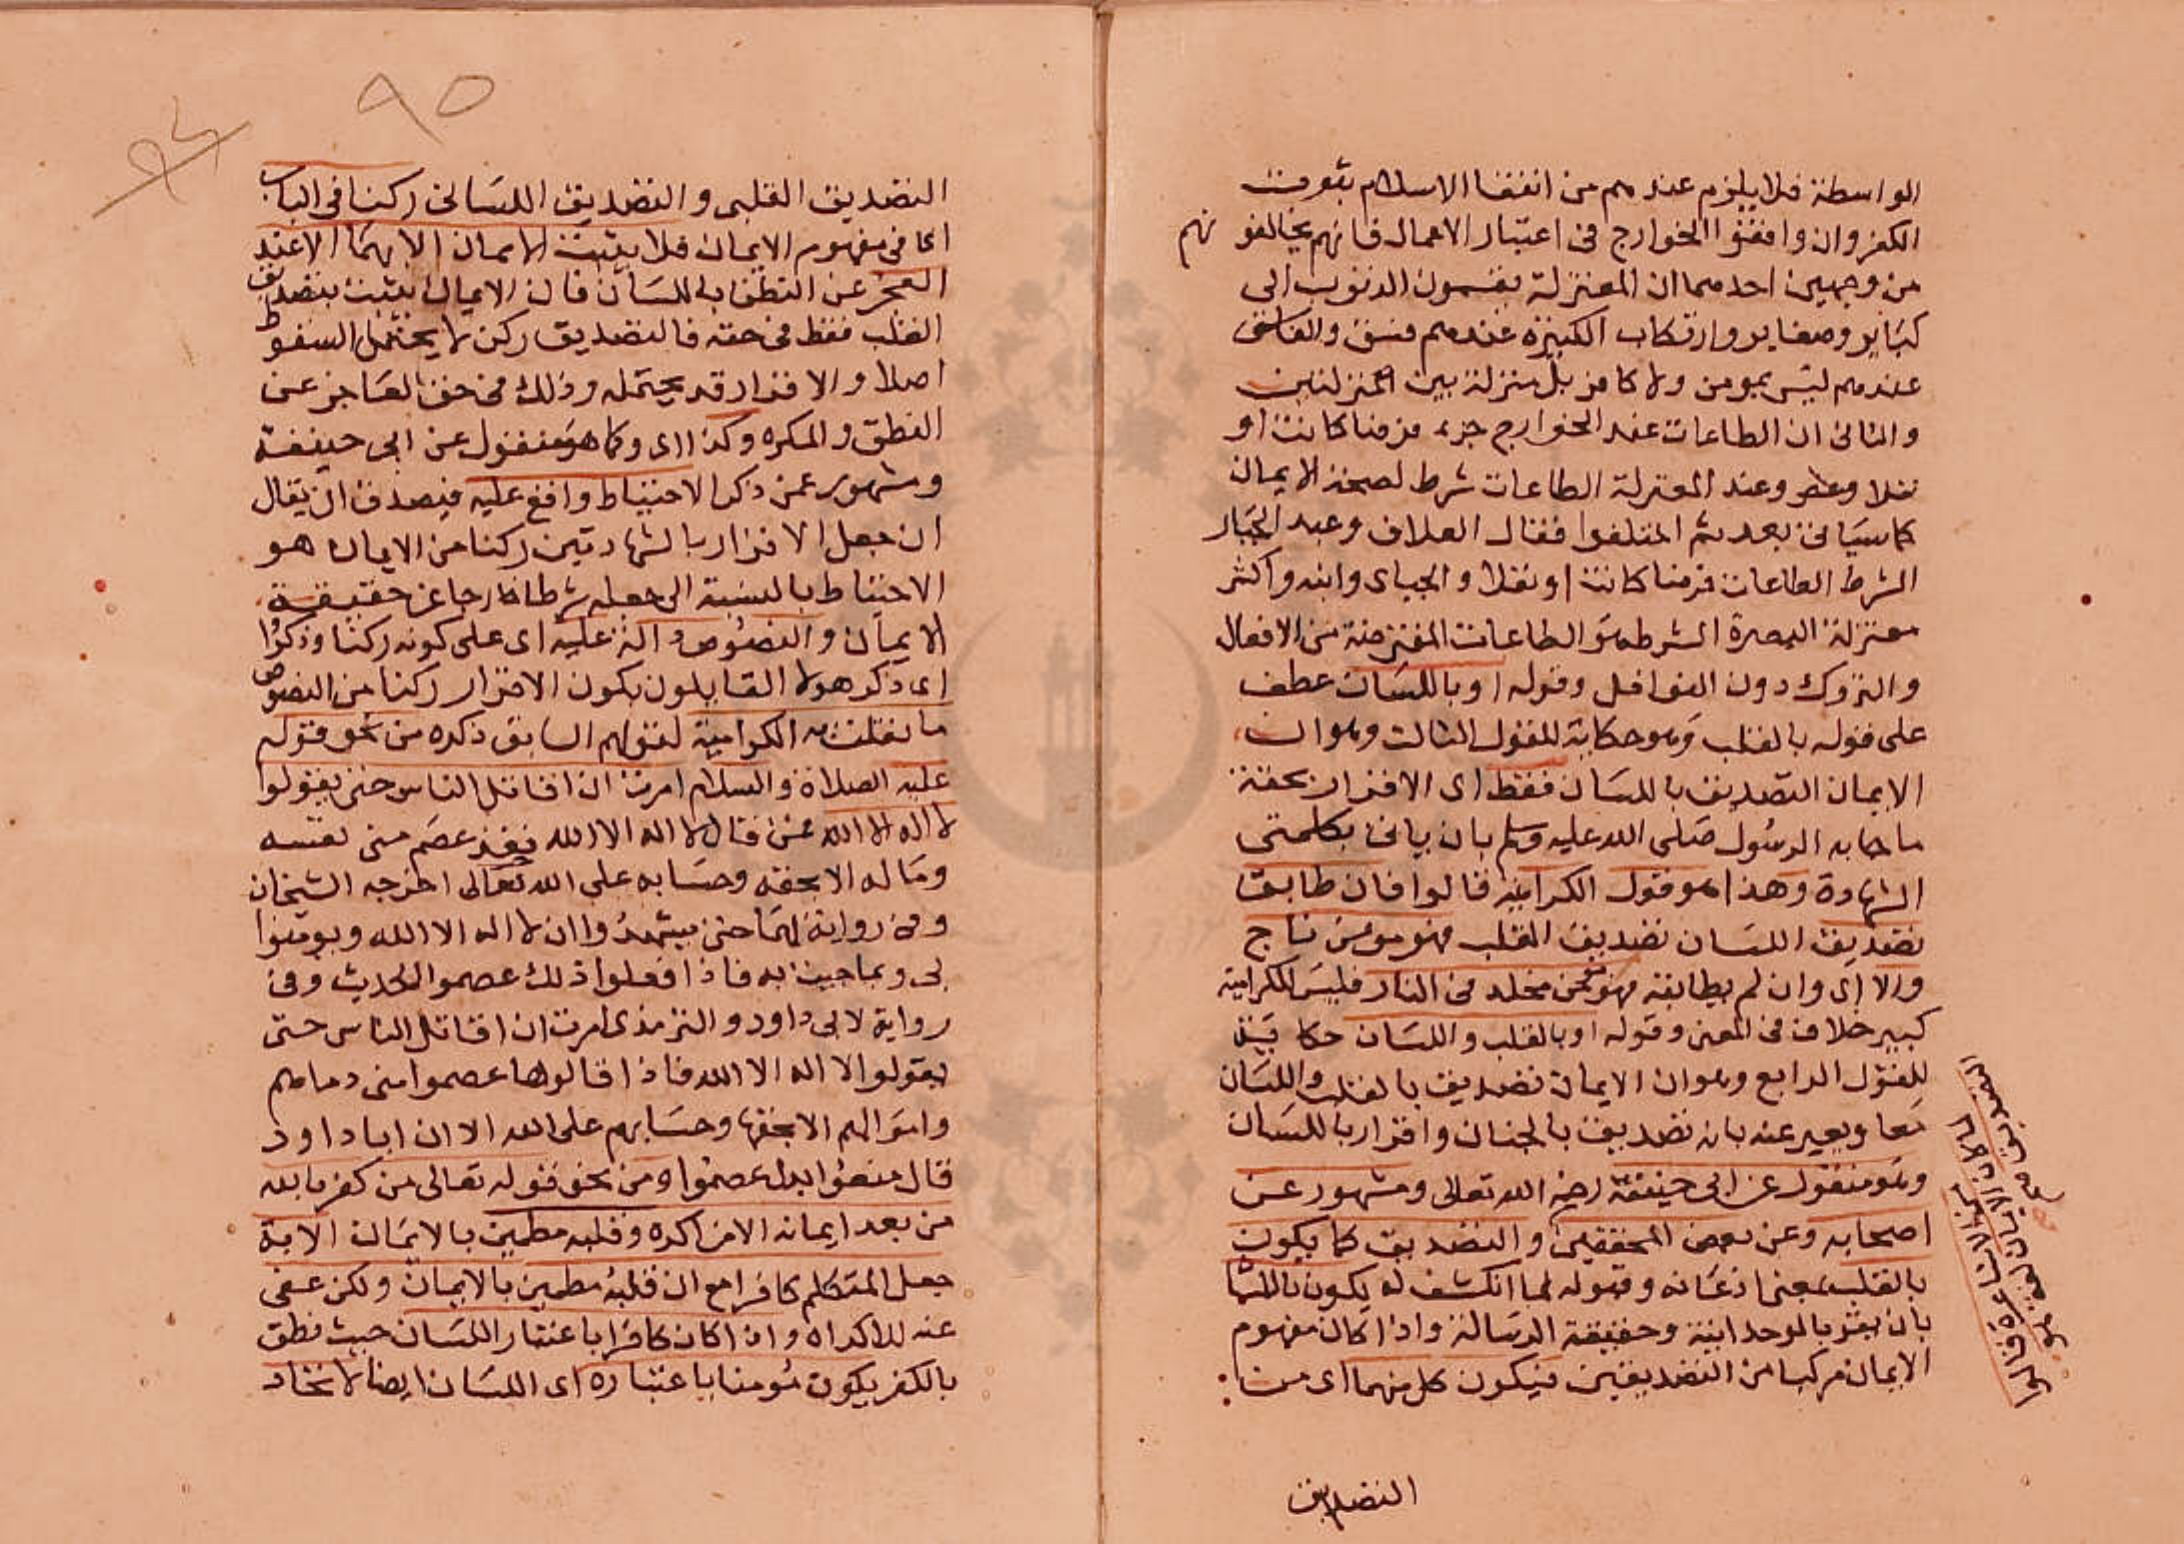 الواسطة فلا يلزم عندهم من انتفا الاسلام ثبوت
الكفر وان وافقوا الخوارج فى اعتبار الاعمال فانهم يخالفونهم
من وجهين احدهما ان المعتزلة يقسمون الذنوب الى
كباير وصغاير وارتكاب الكبيرة عندهم فسق والفاسق
عندهم ليس بمومن ولا كافر بل منزلة بين المنزلتين
والثانى ان الطاعات عند الخوارج جزء فرضا كانت او
نفلا وعند المعتزلة الطاعات شرط لصحة الايمان
كما سياتى بعد ثم اختلفوا فقال العلاف وعبد الجبار
الشرط الطاعات فرضا كانت او نفلا والجباى وابنه واكثر
معتزلة البصرة الشرط هو الطاعات المفترضة من الافعال
والتروك دون النوافل وقوله او باللسان عطف
على قوله بالقلب وهو حكاية للقول الثالث وهو ان
الايمان التصديق باللسان فقط اى الاقرار بحقية
ما جا به الرسول صلى الله عليه وسلم بان ياتى بكلمتى
الشهادة وهذا هو قول الكرامية قالوا فان طابق
تصديق اللسان تصديق القلب فهو مومن ناج
والا اى وان لم يطابقه فهو مومن مخلد فى النار فليس للكرامية
كبير خلاف فى المعنى وقوله او بالقلب واللسان حكاية
للقول الرابع وهو ان الايمان تصديق بالقلب واللسان
معا ويعبر عنه بانه تصديق بالجنان واقرار باللسان
وهو منقول عن ابى حنيفة رضى الله تعالى ومشهور عن
اصحابه وعن بعض المحققين والتصديق كما يكون
بالقلب بمعنى اذعانه وقبوله لما انكشف له يكون باللسان
بان يقر بالوحدانية وحقيقة الرسالة واذا كان مفهوم
الايمان مركبا من التصديقين فيكون كل منهما اى من
التصديق
التصديق القلبى والتصديق اللسانى ركنا فى الباب
اى فى مفهوم الايمان فلا يثبت الايمان الا بهما الا عند
العجز عن النطق باللسان فان الايمان يثبت بتصديق
القلب فقط فى حقه فالتصديق ركن لا يحتمل السقوط
اصلا والاقرار قد يحتمله وذلك فى حق العاجز عن
النطق والمكره وكذا اى وكما هو منقول عن ابى حنيفة
ومشهور عمن ذكر الاحتياط واقع عليه فيصدق ان يقال
ان جعل الاقرار بالشهادتين ركنا من الايمان هو
الاحتياط بالنسبة الى جعله شرطا خارجا عن حقيقة
الايمان والنصوص دالة عليه اى على كونه ركنا وذكروا
اى ذكر هولا القايلون بكون الاقرار ركنا من النصوص
ما تعلقت به الكرامية لقولهم السابق ذكره من نحو قوله
عليه الصلاة والسلام امرت ان اقاتل الناس حتى يقولوا
لا اله الا الله فمن قال لا اله الا الله فقد عصم منى نفسه
وماله الا بحقه وحسابه على الله تعالى اخرجه الشيخان
وفى رواية لهما حتى يشهدوا ان لا اله الا الله ويومنوا
بى وبما جيت به فاذا فعلوا ذلك عصموا الحديث وفى
رواية لابى داود والترمذى امرت ان اقاتل الناس حتى
يقولوا لا اله الا الله فاذا قالوها عصموا منى دماهم
واموالهم الا بحقها وحسابهم على الله الا ان ابا داود
قال منعوا بدل عصموا ومن نحو قوله تعالى من كفر بالله
من بعد ايمانه الا من اكره وقلبه مطمين بالايمان الاية
جعل المتكلم كافرا مع ان قلبه مطمين بالايمان ولكن عفى
عنه للاكراه واذا كان كافرا باعتبار اللسان حيث نطق
بالكفر يكون مومنا باعتباره اى اللسان ايضا لاتحاد
٩٥